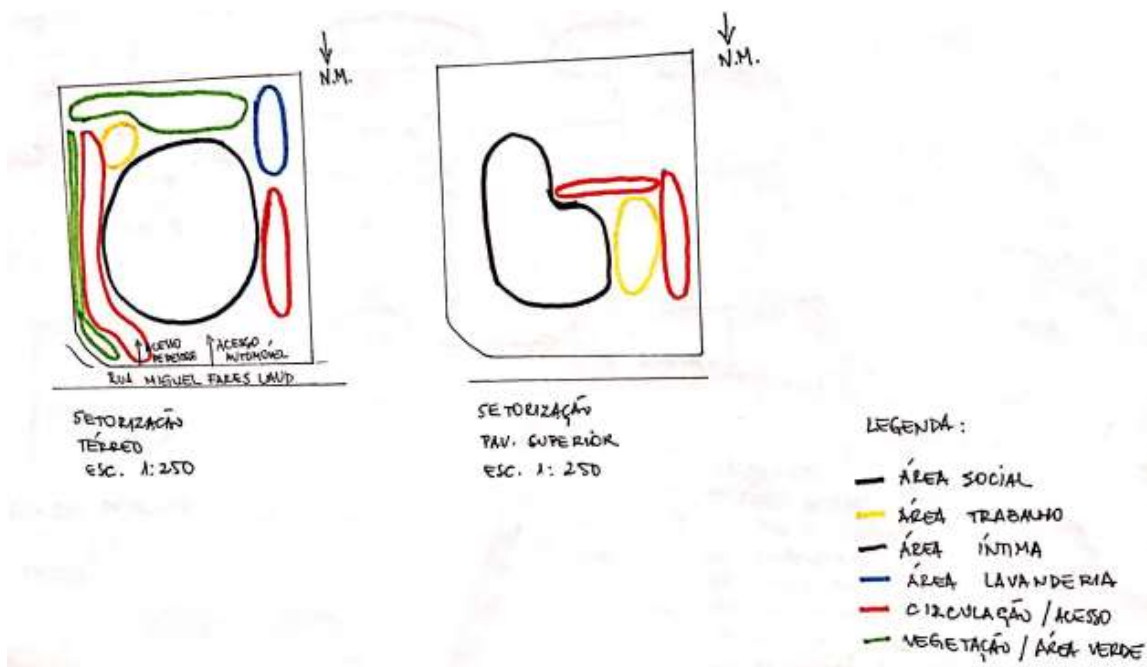 N.M.
N.M.
ACESSO
PEDESTRE
ACESSO
AUTOMÓVEL
RUA MIGUEL FARES LAUD
SETORIZAÇÃO
TÉRREO
ESC. 1:250
SETORIZAÇÃO
PAV. SUPERIOR
ESC. 1:250
LEGENDA:
ÁREA SOCIAL
ÁREA TRABALHO
ÁREA ÍNTIMA
ÁREA LAVANDERIA
CIRCULAÇÃO / ACESSO
VEGETAÇÃO / ÁREA VERDE